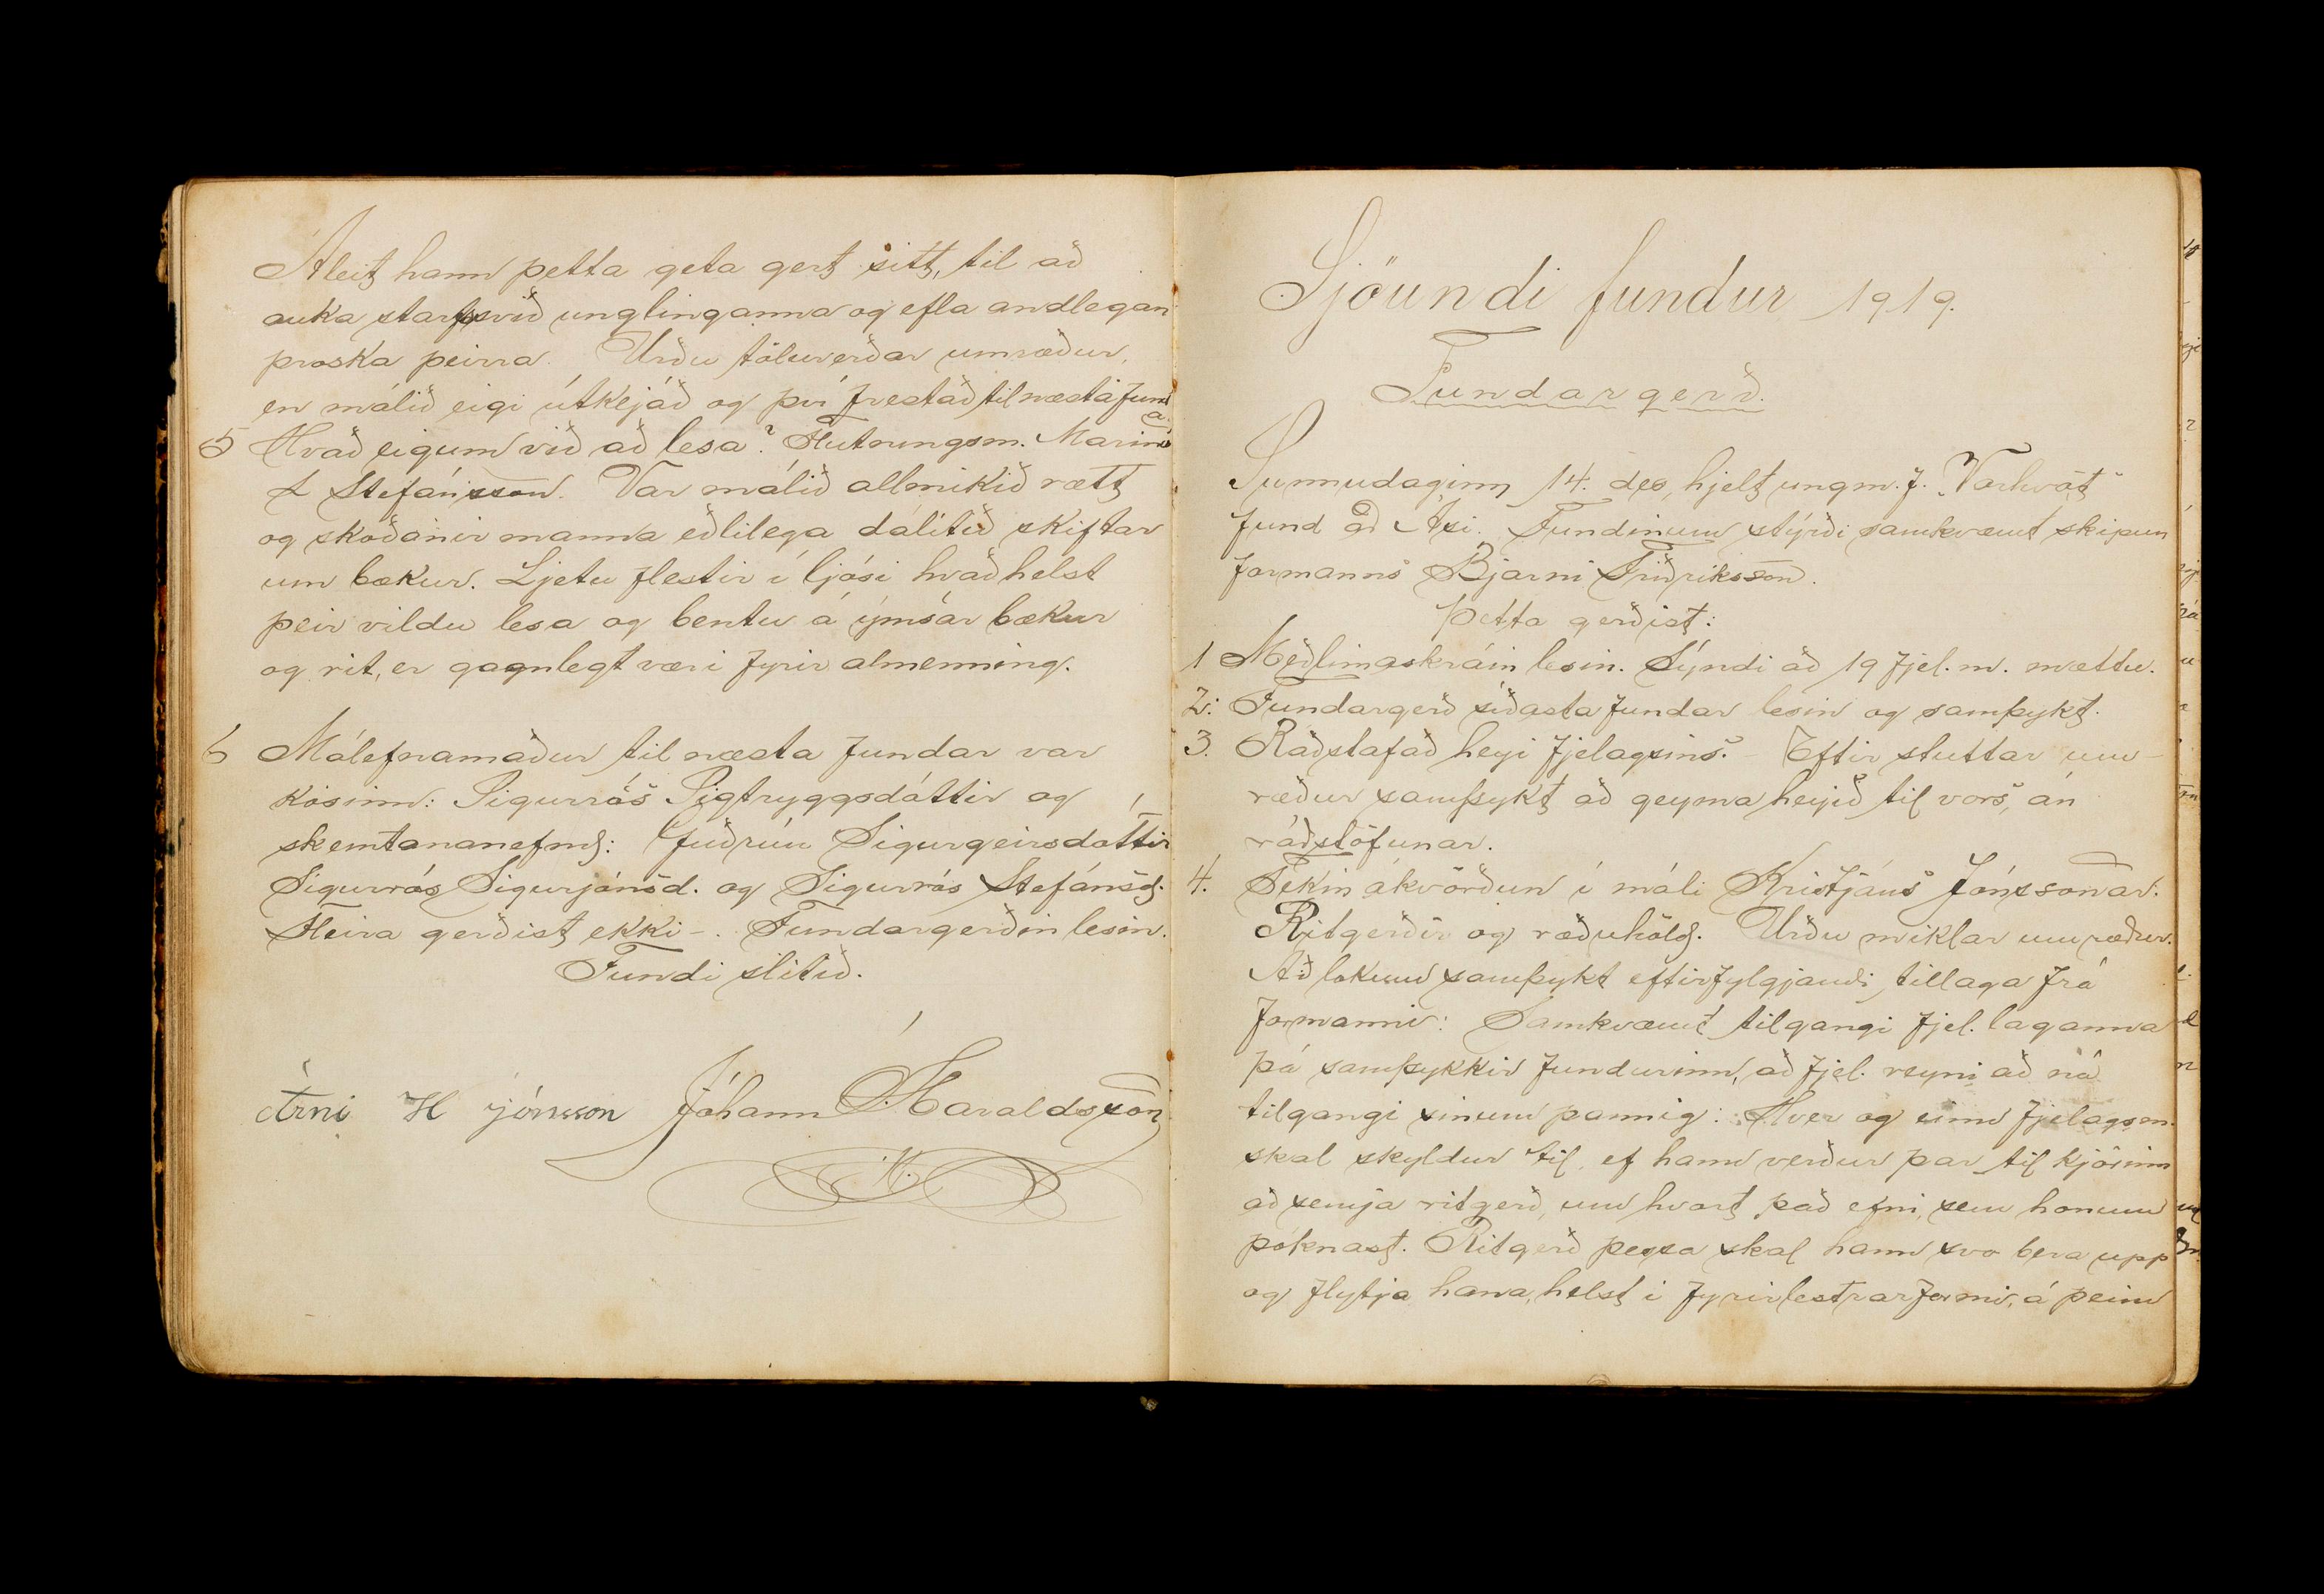 Áleit hann þetta geta gert sitt, til að
auka starfssvið unglinganna og efla andlegan
þroska þeirra. Urðu töluverðar umræður,
en málið eigi útkejáð og því frestað til næsta funda.
5 Hvað eigum við að lesa? Flutnungsm. Marinó
L Stefánsson. Var málið allmikið rætt
og skoðanir manna eðlilega dálítið skiftar
um bækur. Ljetu flestir í ljósi hvað helst
þeir vildu lesa og bentu á ýmsar bækur
og rit, er gagnlegt væri fyrir almenning.
6 Málefnamaður til næsta fundar var
kosinn: Sigurrós Sigtryggsdóttir og
skemtananefnd: Guðrún Sigurgeirsdóttir
Sigurrós Sigurjónsd. og Sigurrós Stefánsd.
Fleira gerðist ekki -. Fundargerðin lesin.
Fundi slitið.
Árni H jónsson Jóhann Haraldsson
Sjöundi fundur 1919.
Fundargerð.
Sunnudaginn 14. des, hjelt ungm.f. "Vorhvöt"
fund að Ási. Fundinum stýrði samkvæmt skipun
formanns Bjarni Friðriksson.
Þetta gerðist:
1 Meðlimaskráin lesin. Sýndi að 19 fjel.m. mættu.
2: Fundargerð síðasta fundar lesin og samþykt.
3. Ráðstafað heyi fjelagsins. - Eftir stuttar um-
ræður samþykt að geyma heyið til vors, án
ráðstöfunar.
4. Tekin ákvörðun í máli Kristjáns Jónssonar.
Ritgerðir og ræðuhöld. Urðu miklar umræður.
Að lokum samþykt eftirfylgjandi tillaga frá
formanni: Samkvæmt tilgangi fjel. laganna
þá samþykkir fundurinn, að fjel. reyni að ná
tilgangi sinum þannig: Hver og einn fjelagsm.
skal skyldur til, ef hann verður þar til kjörinn
að semja ritgerð, um hvort það efni, sem honum
þóknast. Ritgerð þessa skal hann svo bera upp
og flytja hana, helst i fyrirlestrarformi, á þeim